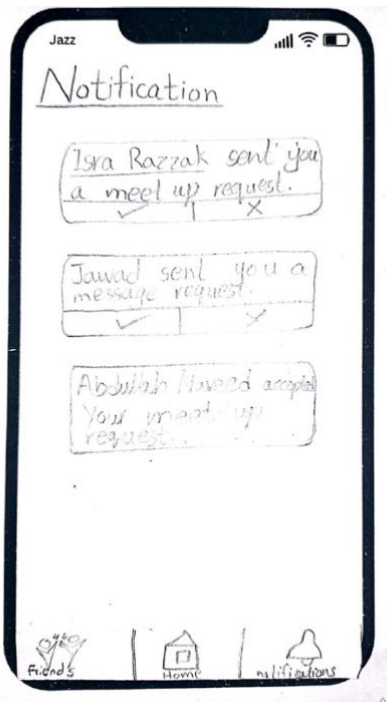 Jazz
Notification
Isra Razzak sent you
a meet up request.
Jawad sent you a
message request.
Abdullah Naveed accepted
Your meet-up
request.
Friends
Home
notifications